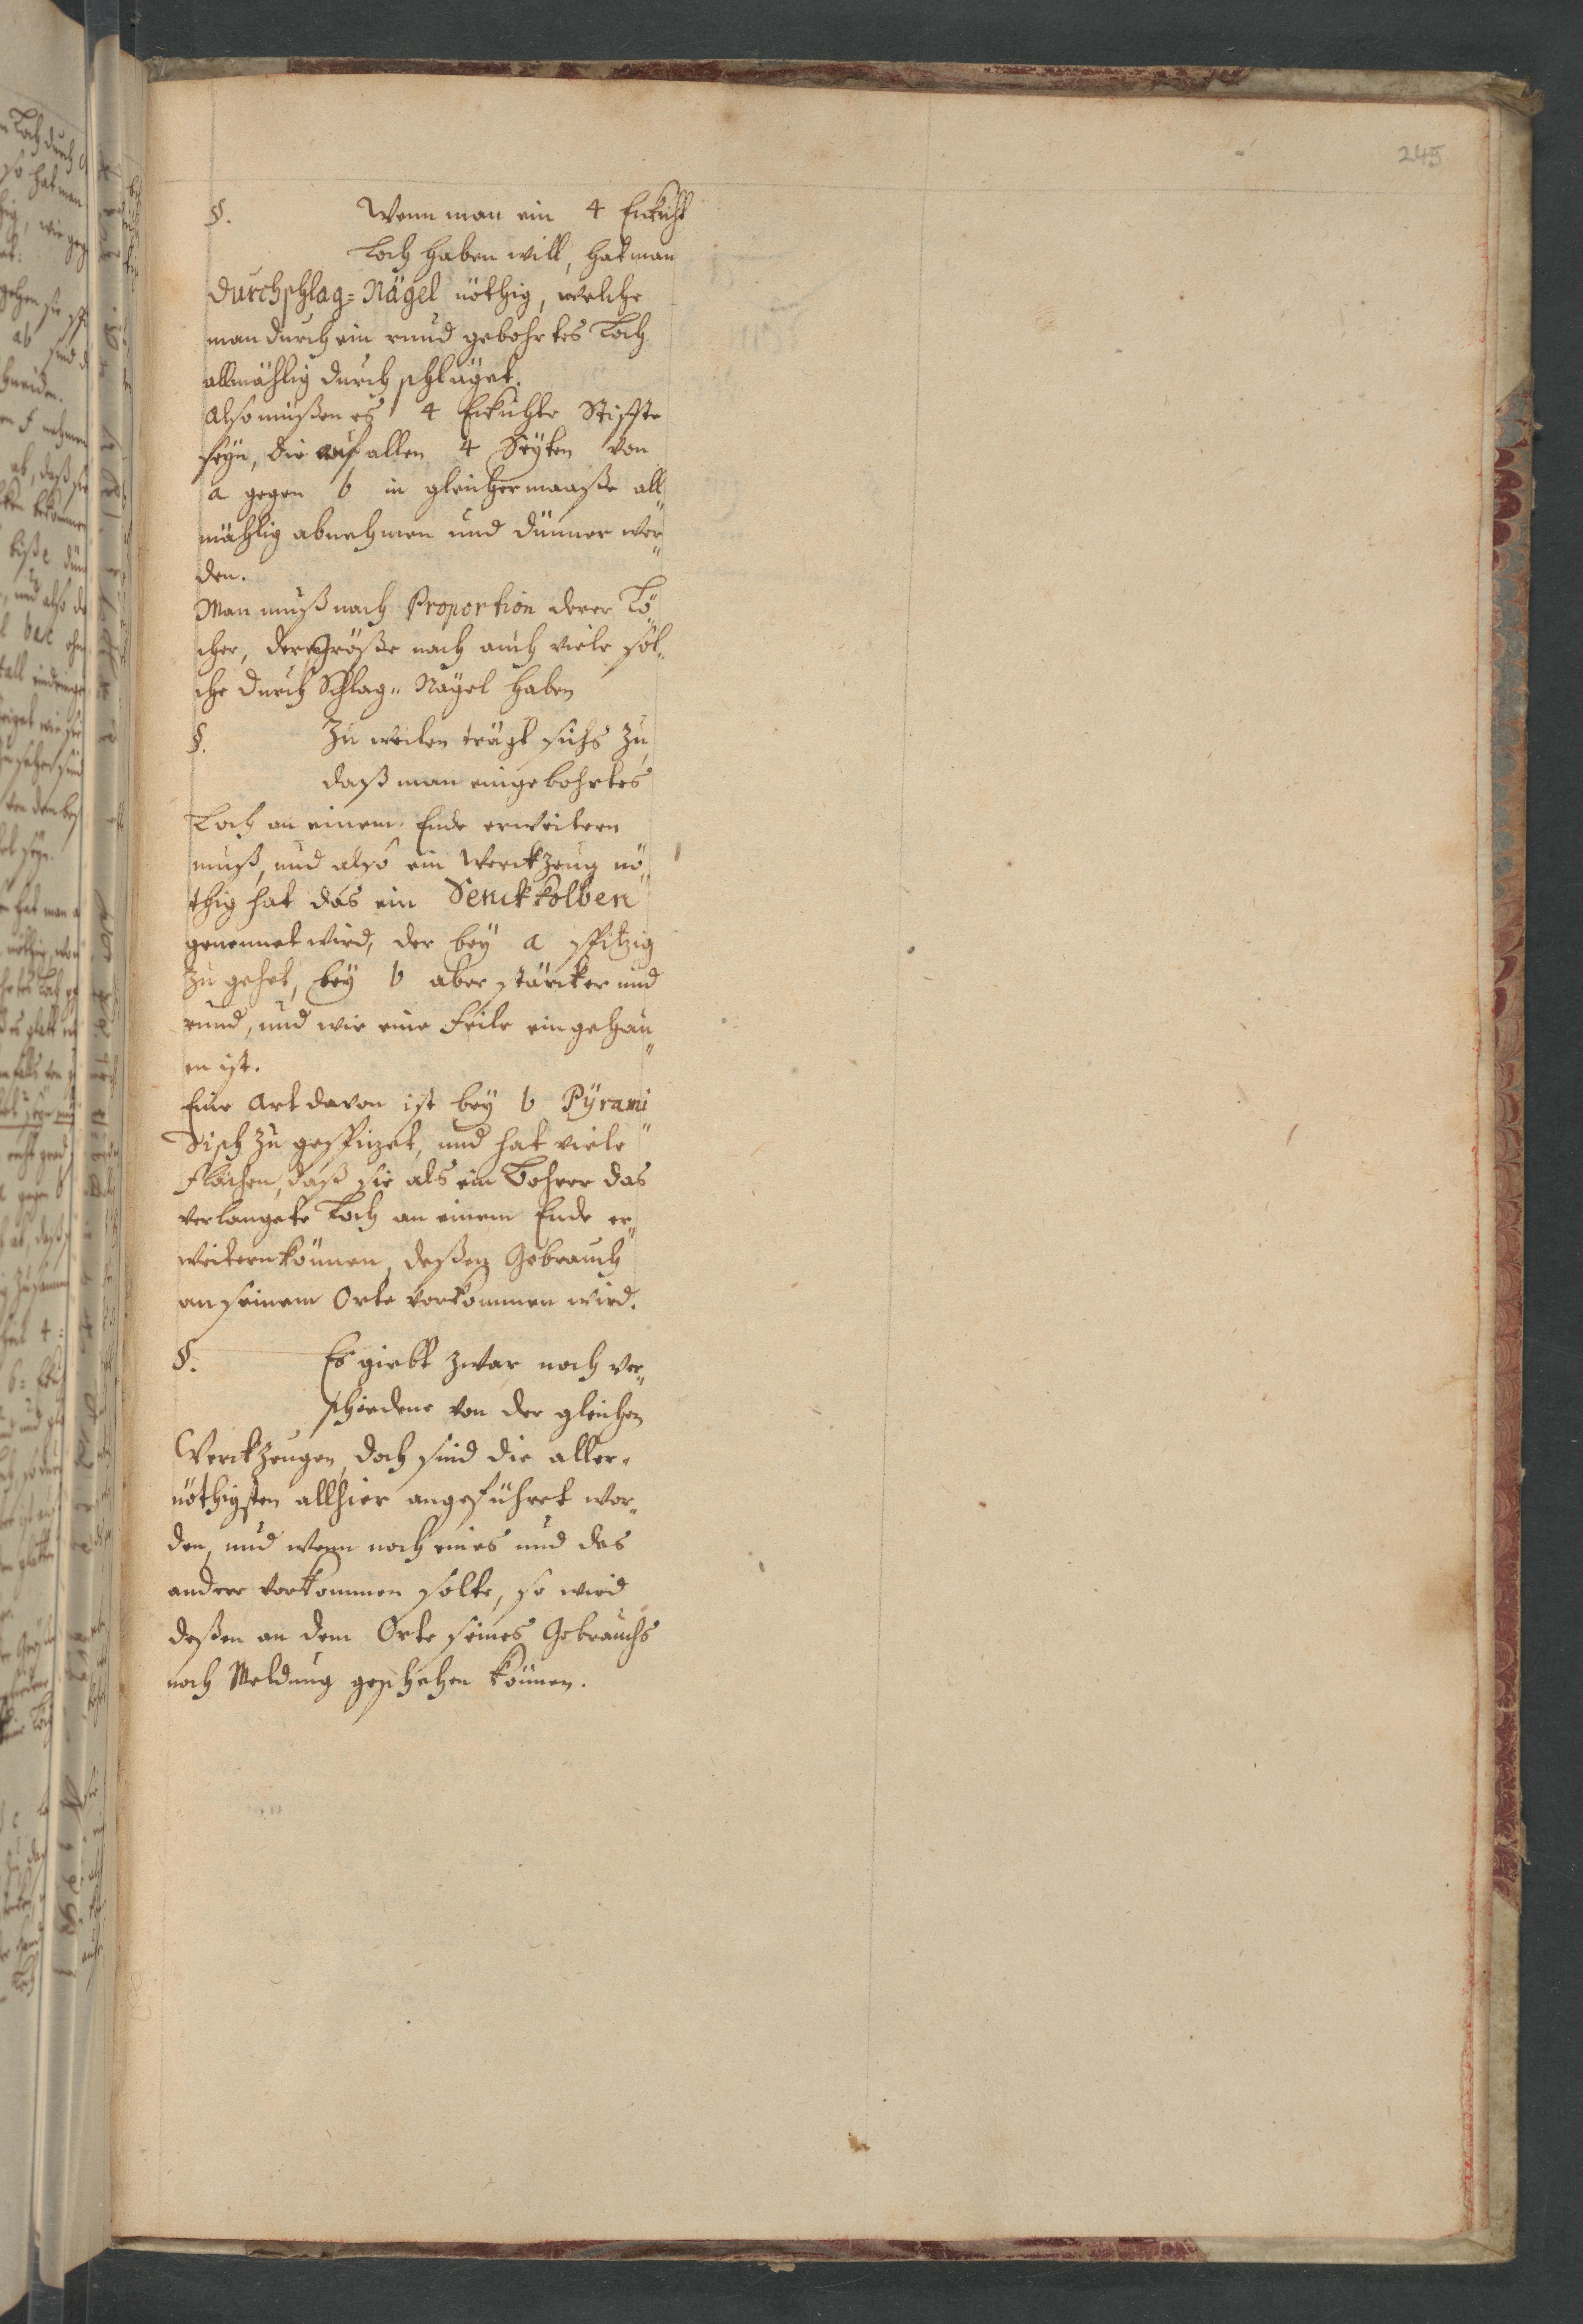 245
§. Wenn man ein 4 Eckicht
Loch haben will, hat man
Durchschlag=Nägel nöthig, welche
man durch ein rund gebohrtes Loch
allmählig durch schläget.
Also müßen es 4 Eckichte Stiffte
seyn, die auf allen 4 Seyten von
a gegen b in gleichermaaße all
mählig abnehmen und dünner wer„
den.
Man muß nach Proportion derer Lö„
cher, der Größe nach auch viele sol„
che durch Schlag„ Nägel haben
§. Zu weilen trägt sichs zu,
daß man ein gebohrtes
Loch an einem Ende erweitern
muß, und also ein Werckzeug nö„
thig hat das ein Senckkolben
genennet wird, der bey a spitzig
zu gehet, bey b aber stärcker und
rund, und wie eine Feile eingehau„
en ist.
Eine Art davon ist bey b Pÿrami„
disch zu gespitzet, und hat viele
Flächen, daß sie als ein Bohrer das
verlangete Loch an einem Ende er„
weitern können, deßen Gebrauch
an seinem Orte vorkommen wird.
§. Es giebt zwar noch ver„
schiedene von der gleichen
Werckzeugen, doch sind die aller„
nöthigsten allhier angeführet wor„
den, und wenn noch eines und das
andere vorkommen solte, so wird
deßen an dem Orte seines Gebrauchs
noch Meldung geschehen können.